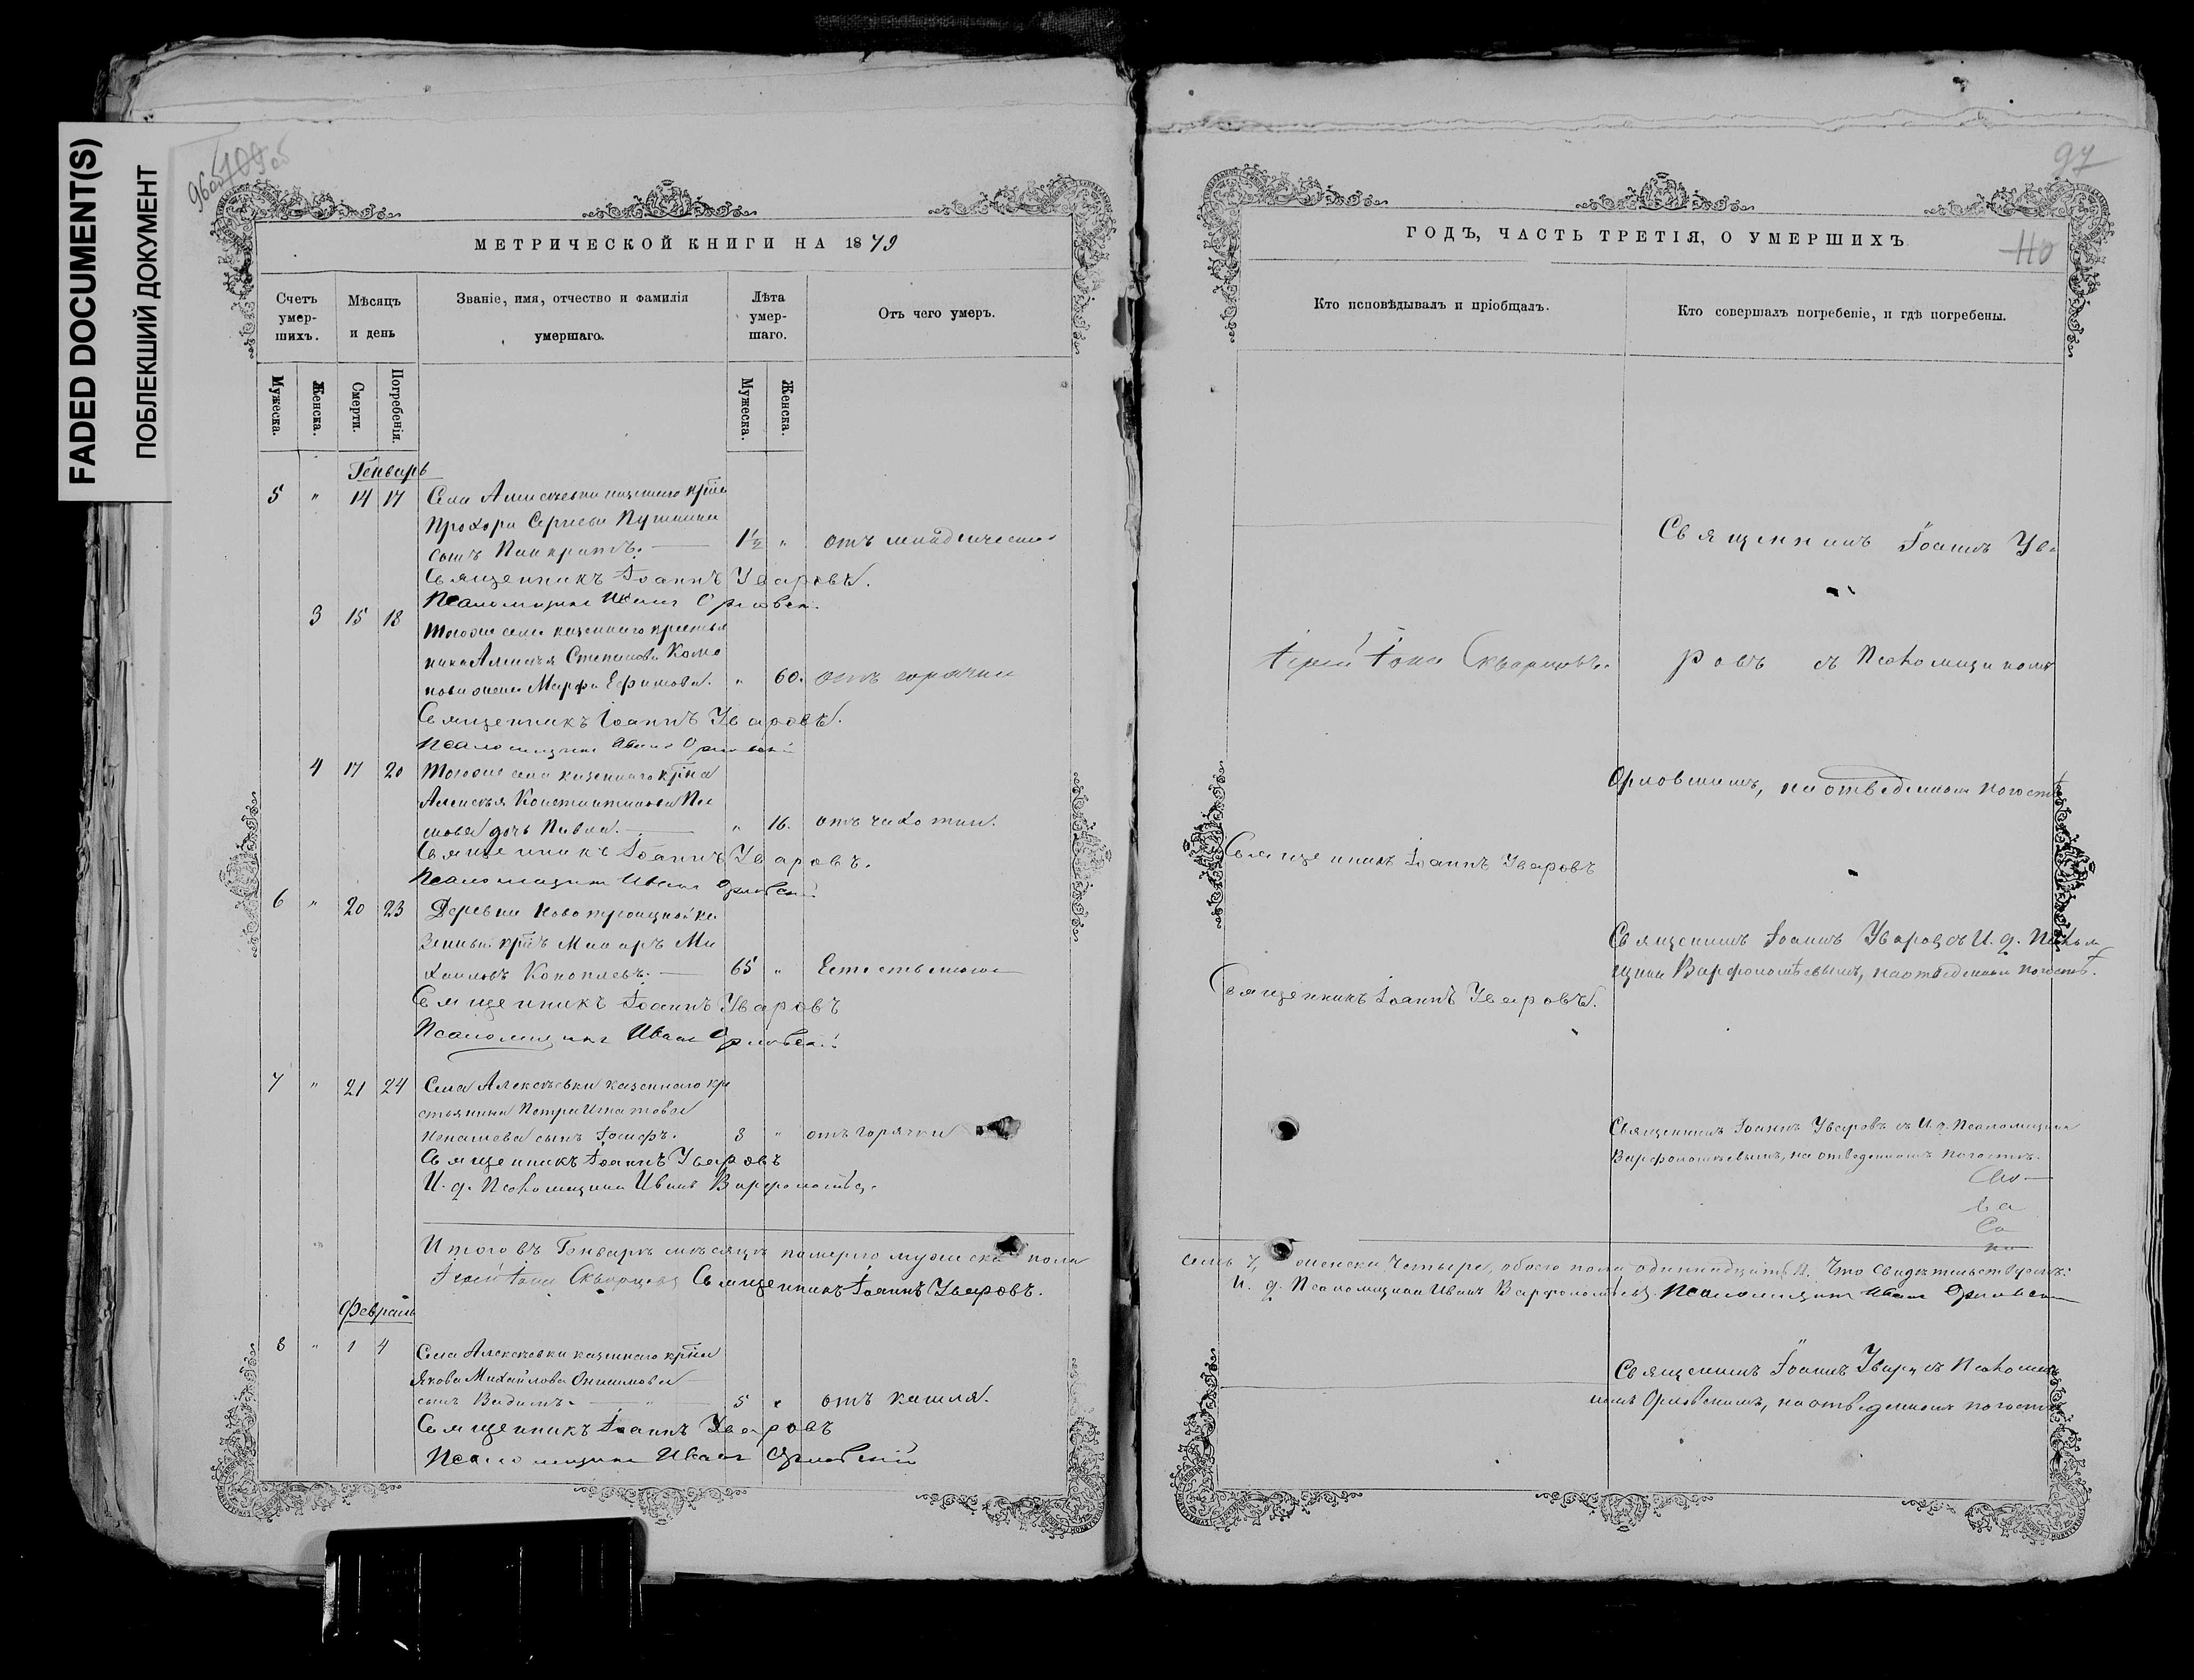 FADED DOCUMENT(S)
ПОБЛЕКШИЙ ДОКУМЕНТ
96об
МЕТРИЧЕСКОЙ КНИГИ НА 1879
Счетъ умер-шихъ.
Мѣсяцъ и день
Званіе, имя, отчество и фамилія умершаго.
Лѣта умер-шаго.
Отъ чего умеръ.
Мужеска.
Женска.
Смерти.
Погребенія.
Мужеска.
Женска.
Генварь
5 " 14 17 Села Алексѣевки казеннаго крⷭ҇т
Прохора Сергѣева
сынъ Панкратъ. 1½ " отъ младенческой
Священникъ Іоаннъ Уваровъ.
Псаломщикъ Иванъ Орловскій
3 15 18 Тогоже села казеннаго крестья
нина Алексѣя Степанова Коно
нова жена Марфа Ефимова. " 60. отъ горячки
Священникъ Іоаннъ Уваровъ.
Псаломщикъ Иванъ Орловскій
4 17 20 Тогоже села казеннаго крⷭ҇на
Алексѣя Константинова
дочь " 16. отъ чахотки.
Священникъ Іоаннъ Уваровъ.
Псаломщикъ Иванъ Орловскій
6 " 20 23 Деревни Новотроицкой ка
зенный Макаръ Ми
хайловъ Коноплевъ. 65 " Естественною
Священникъ Іоаннъ Уваровъ
Псаломщикъ Иванъ Орловскій
7 " 21 24 Села Алексѣевки казеннаго кре
стьянина Петра Игнатова
Ненашева сынъ Іосифъ. 3 " отъ горячки
Священникъ Іоаннъ Уваровъ
И. д. Псаломщика Иванъ Варфоломѣев
Итого въ Генварѣ мѣсяцѣ померло мужеска пола
Іерей Іона Скворцовъ Священникъ Іоаннъ Уваровъ.
Февраль
8 " 1 4 Села Алексѣевки казеннаго
Якова Михайлова Онисимова
сынъ Вадимъ. 5 " отъ кашля.
Священникъ Іоаннъ Уваровъ
Псаломщикъ Иванъ Орловскій
97
110
ГОДЪ, ЧАСТЬ ТРЕТІЯ, О УМЕРШИХЪ
Кто исповѣдывалъ и пріобщалъ.
Кто совершалъ погребеніе, и гдѣ погребены.
Священникъ Іоаннъ Ува
Іерей Іона Скворцовъ.
ровъ съ Псаломщикомъ
Орловскимъ, на отведенномъ погостѣ
Священникъ Іоаннъ Уваровъ
Священникъ Іоаннъ Уваровъ съ И. д. Псалом
щика Варфоломѣевымъ, на отведенномъ погостѣ.
Священникъ Іоаннъ Уваровъ.
Священникъ Іоаннъ Уваровъ съ И. д. Псаломщика
Варфоломѣевымъ, на отведенномъ погостѣ.
семь 7, женска четыре, обоего пола одиннадцать 11. Что свидѣтельствуемъ:
И. д. Псаломщика Иванъ Варфоломѣев Псаломщикъ Иванъ Орловскій
Священникъ Іоаннъ Увар. съ Псаломщи
комъ Орловскимъ, на отведенномъ погостѣ